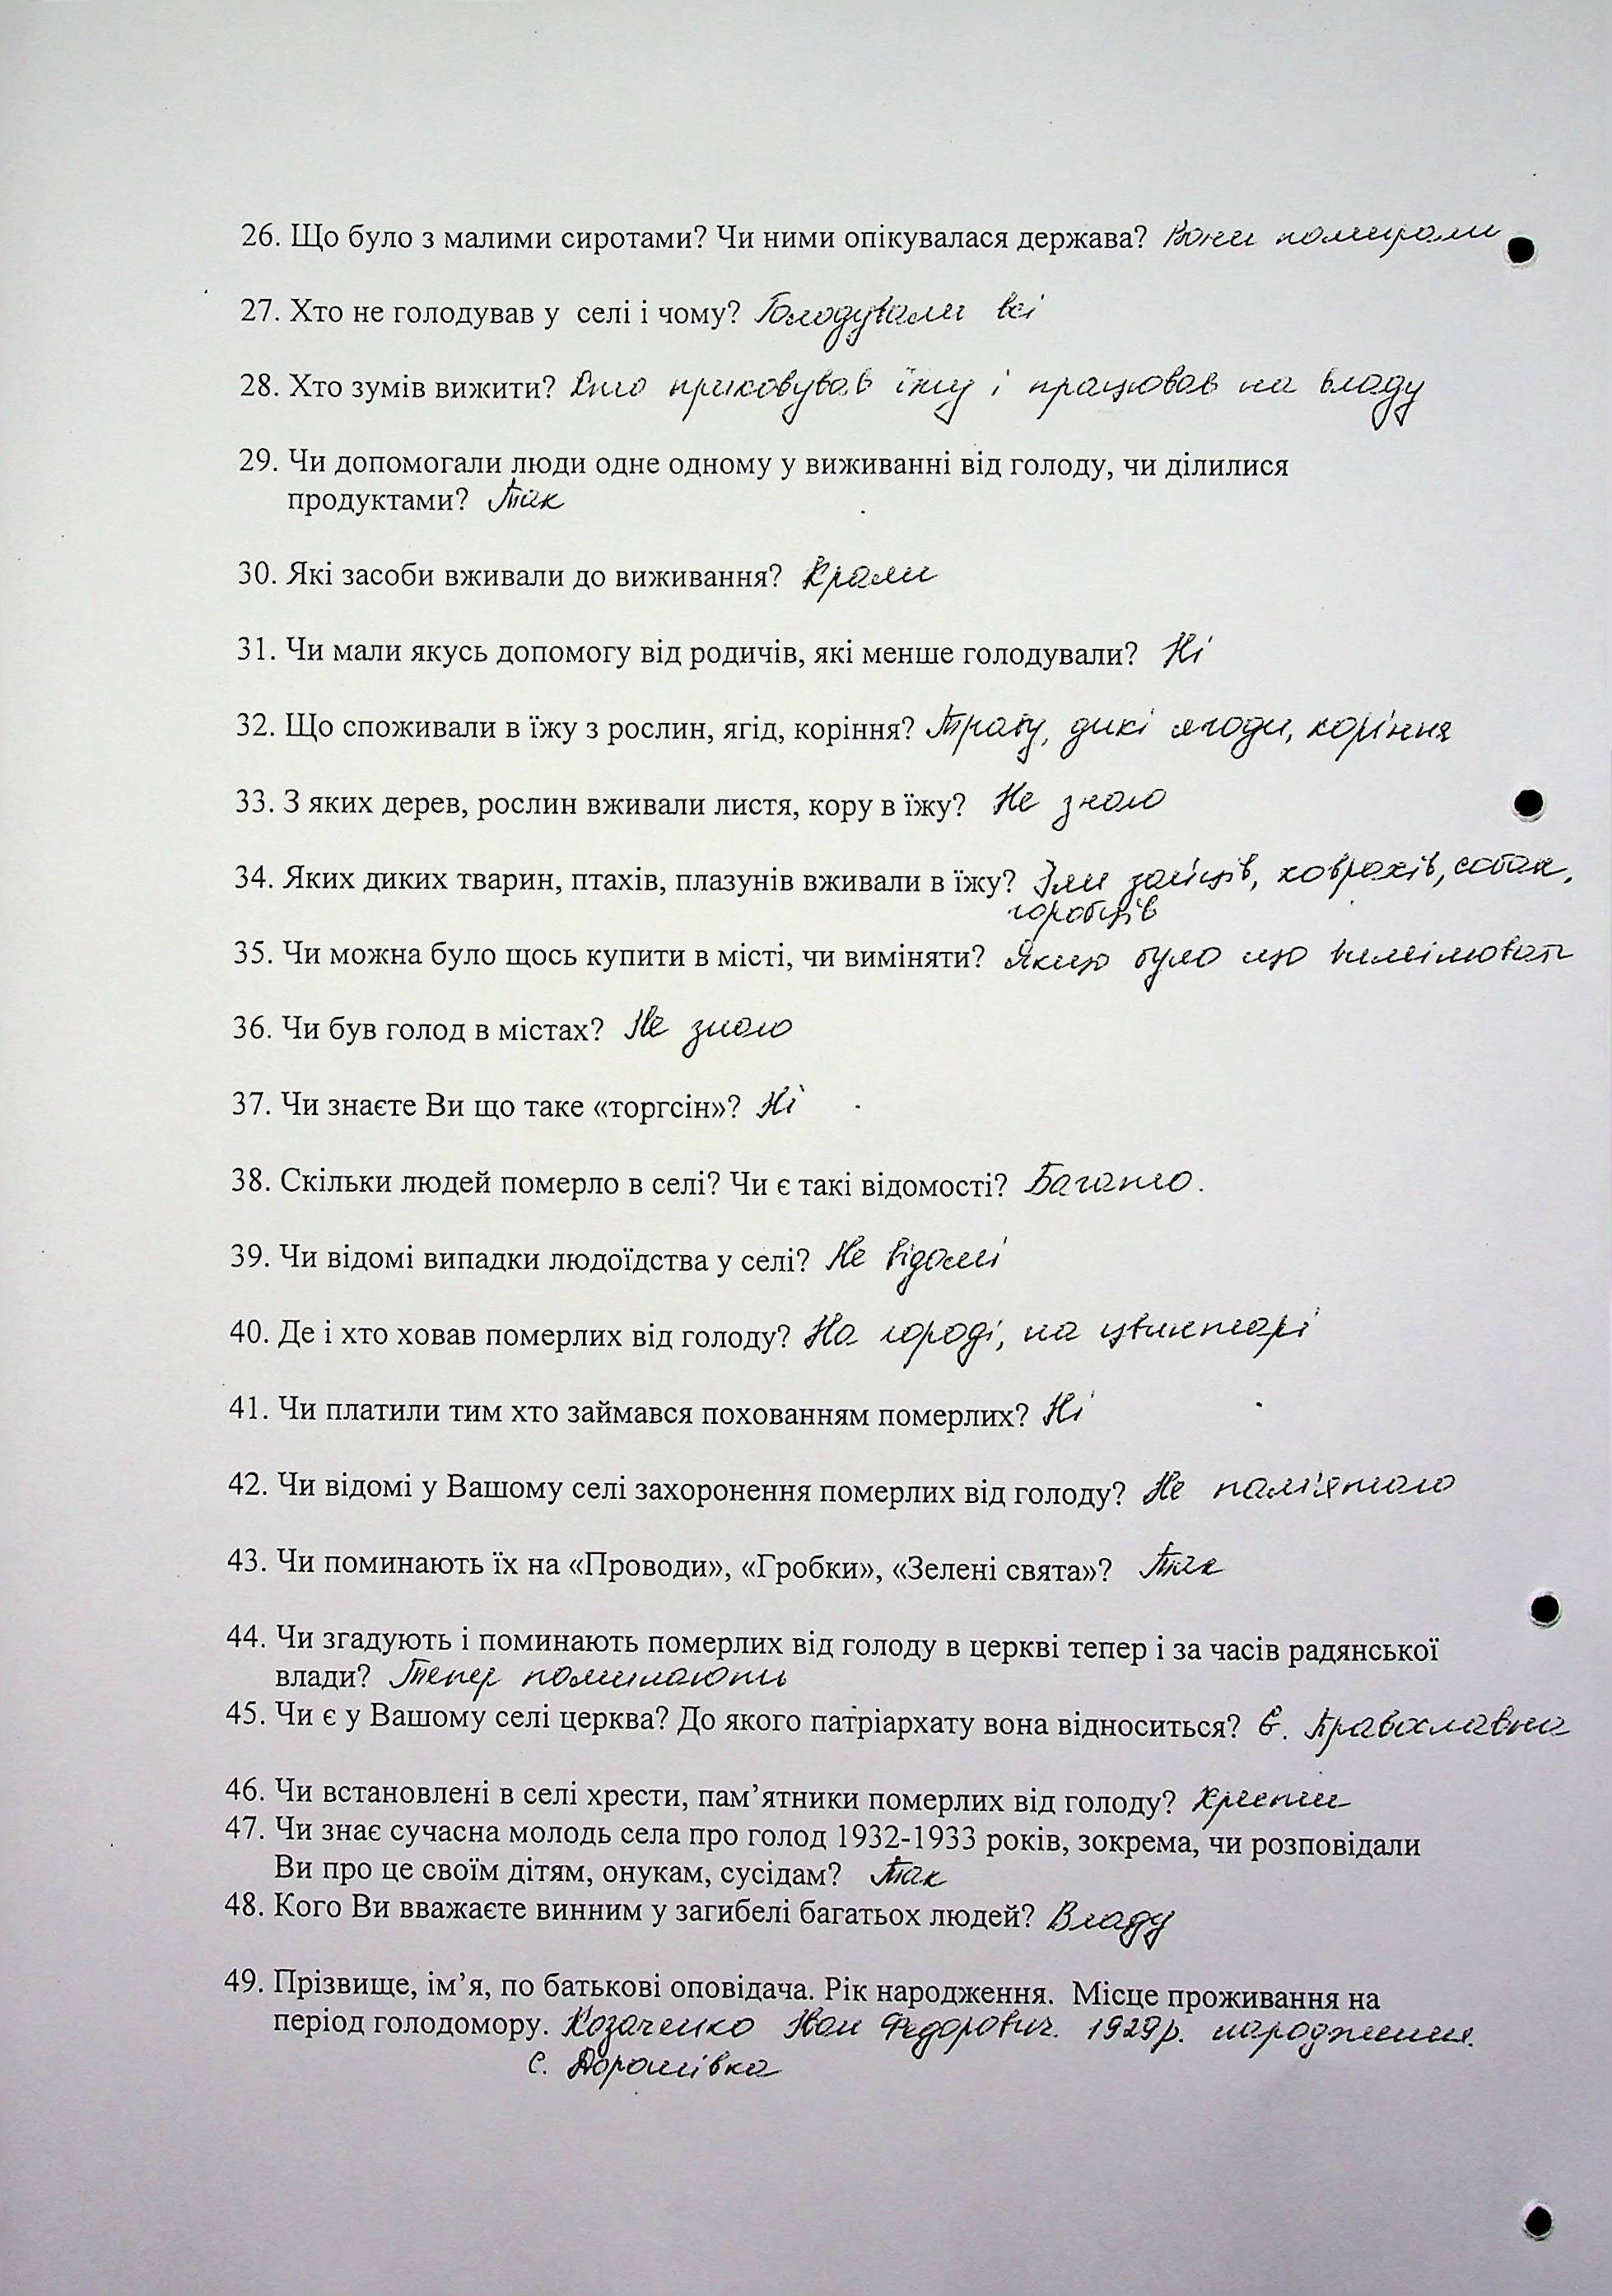 26. Що було з малими сиротами? Чи ними опікувалася держава? Вони помирали
27. Хто не голодував у селі і чому? Голодували всі
28. Хто зумів вижити? Хто приховував їжу і працював на владу
29. Чи допомогали люди одне одному у виживанні від голоду, чи ділилися
продуктами? Так
30. Які засоби вживали до виживання? Крали
31. Чи мали якусь допомогу від родичів, які менше голодували? Ні
32. Що споживали в їжу з рослин, ягід, коріння? Траву, дикі ягоди, коріння
33. З яких дерев, рослин вживали листя, кору в їжу? Не знаю
34. Яких диких тварин, птахів, плазунів вживали в їжу? Їли зайців, ховрахів, собак,
горобців
35. Чи можна було щось купити в місті, чи виміняти? Якщо було що вимінювать
36. Чи був голод в містах? Не знаю
37. Чи знаєте Ви що таке «торгсін»? Ні
38. Скільки людей померло в селі? Чи є такі відомості? Багато.
39. Чи відомі випадки людоїдства у селі? Не відомі
40. Де і хто ховав померлих від голоду? На городі, на цвинтарі
41. Чи платили тим хто займався похованням померлих? Ні
42. Чи відомі у Вашому селі захоронення померлих від голоду? Не пам'ятаю
43. Чи поминають їх на «Проводи», «Гробки», «Зелені свята»? Так
44. Чи згадують і поминають померлих від голоду в церкві тепер і за часів радянської
влади? Тепер поминають
45. Чи є у Вашому селі церква? До якого патріархату вона відноситься? Є. Православна
46. Чи встановлені в селі хрести, пам’ятники померлих від голоду? Хрести
47. Чи знає сучасна молодь села про голод 1932-1933 років, зокрема, чи розповідали
Ви про це своїм дітям, онукам, сусідам? Так
48. Кого Ви вважаєте винним у загибелі багатьох людей? Владу
49. Прізвище, ім’я, по батькові оповідача. Рік народження. Місце проживання на
період голодомору. Козаченко Іван Федорович. 1929р. народження.
с. Дорошівка